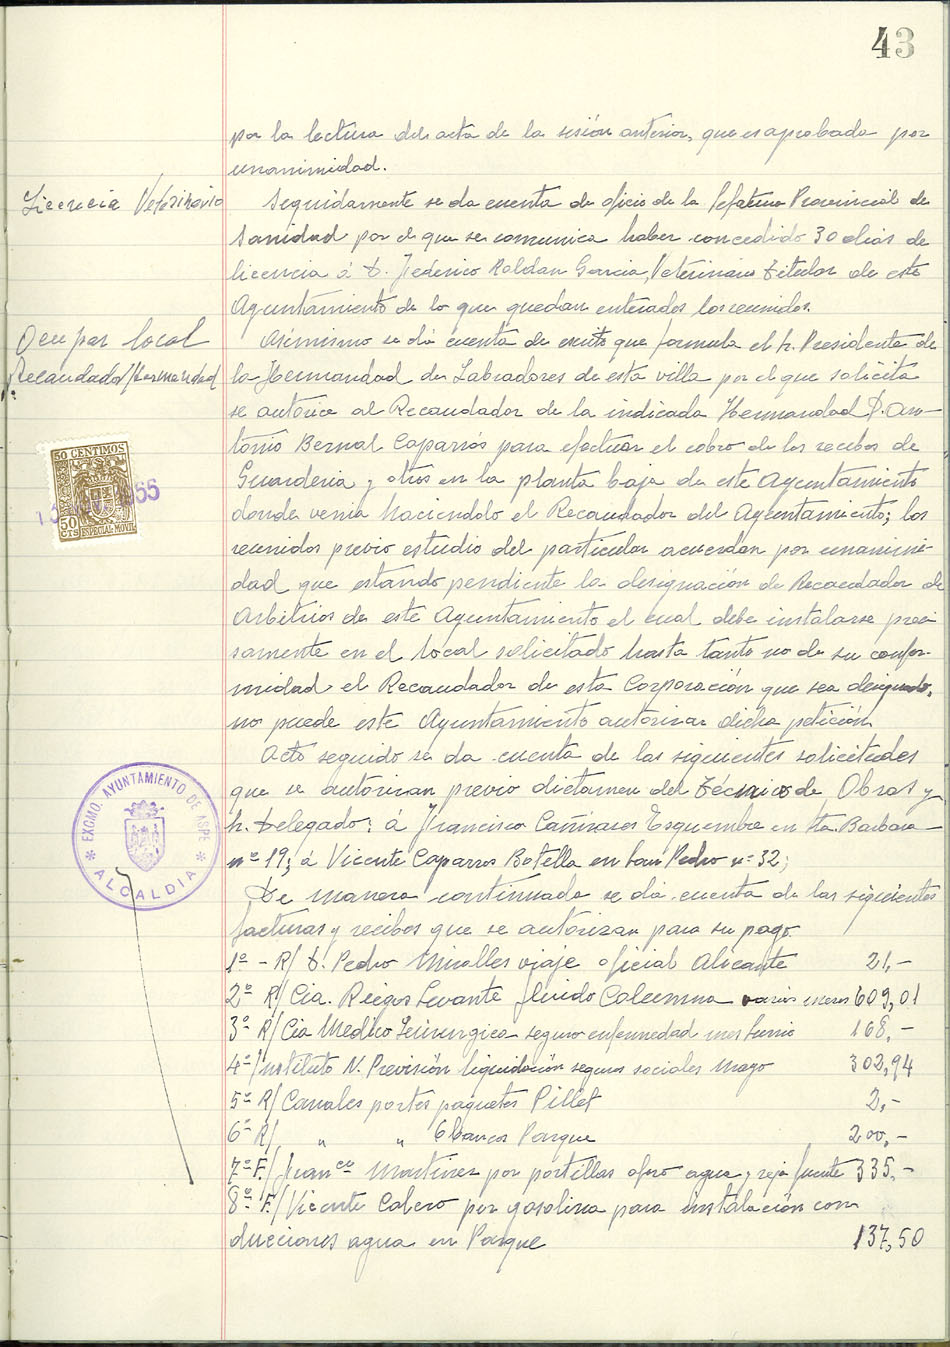 43
por la lectura del acta de la sesión anterior, que es aprobada por
unanimidad.
Licencia Veterinario
Seguidamente se da cuenta de oficio de la Jefatura Provincial de
Sanidad por el que se comunica haber concedido 30 dias de
licencia á D. Federico Roldan Garcia, Veterinario Titular de este
Ayuntamiento de lo que quedan enterados los reunidos.
Ocupar local
Recaudador Hermandad
Asimismo se dá cuenta de escrito que formula el Sr. Presidente de
la Hermandad de Labradores de esta villa por el que solicita
se autorice al Recaudador de la indicada Hermandad D. An-
tonio Bernal Caparrós para efectuar el cobro de los recibos de
Guarderia y otros en la planta baja de este Ayuntamiento
donde venia haciendolo el Recaudador del Ayuntamiento; los
reunidos previo estudio del particular acuerdan por unanimi-
dad que estando pendiente la designación de Recaudador de
Arbitrios de este Ayuntamiento el cual debe instalarse preci
samente en el local solicitado hasta tanto no de su confor-
midad el Recaudador de esta Corporación que sea designado,
no puede este Ayuntamiento autorizar dicha petición
Acto seguido se da cuenta de las siguientes solicitudes
que se autorizan previo dictamen del Técnico de Obras y
Sr. Delegado: á Francisco Cañizares Esquembre en Sta. Barbara
nº 19; á Vicente Caparros Botella en San Pedro nº 32;
De manera continuada se dá cuenta de las siguientes
facturas y recibos que se autorizan para su pago
1º - R/ D. Pedro Miralles viaje oficial Alicante 21,-
2º R/ Cia. Riegos Levante fluido Columna varios meses 609,01
3º R/ Cia Medico Quirurgica seguro enfermedad mes Junio 168,-
4º/ Instituto N. Previsión liquidación seguros sociales Mayo 302,94
5º R/ Canales portes paquetes Pillet 2,-
6º R/ " " 6 bancos Parque 200,-
7º F./ Franco Martinez por portillas aforo agua y reja fuente 335,-
8º F/ Vicente Calero por gasolina para instalación con
ducciones agua en Parque 137,50
50 CENTIMOS
50 CTS
ESPECIAL MOVIL
EXCMO. AYUNTAMIENTO DE ASPE
* ALCALDIA *